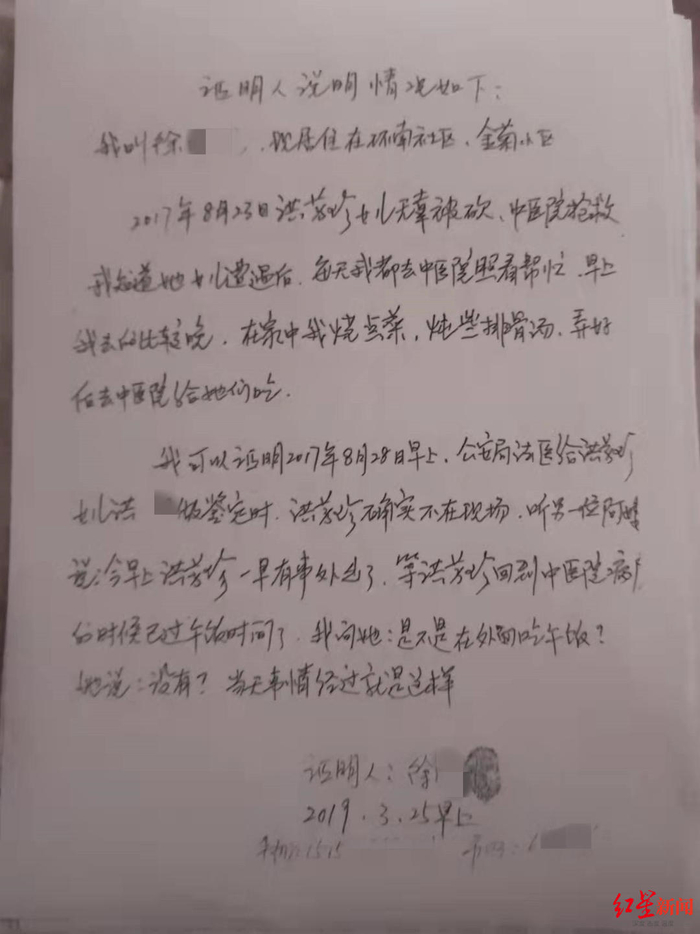 证明人说明情况如下：
我叫徐，现居住在环南社区、金菊小区
2017年8月23日洪芬珍女儿无辜被砍、中医院抢救
我知道她女儿遭遇后、每天我都去中医院照看帮忙、早上
我去的比较晚，在家中我烧点菜，炖些排骨汤、弄好
后去中医院给她们吃.
我可以证明2017年8月28日早上、公安局法医给洪芬珍
女儿洪做鉴定时、洪芬珍确实不在现场，听另一位阿姨
说：今早上洪芬珍一早有事外出了，等洪芬珍回到中医院病
的时候已过午饭时间了、我问她：是不是在外面吃午饭？
她说：没有？当天事情经过就是这样
证明人：徐
2019.3.25早上
手机：1515
红星新闻